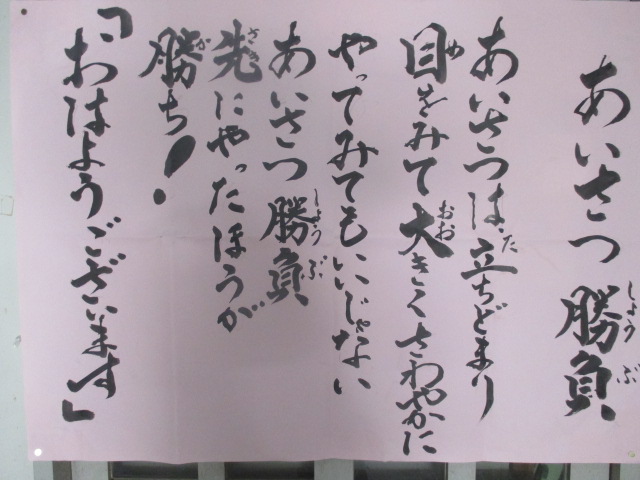 あいさつ 勝負
あいさつは、立ちどまり
目をみて 大きく さわやかに
やってみてもいいじゃない
あいさつ 勝負
先にやったほうが
勝ち!
「おはようございます」